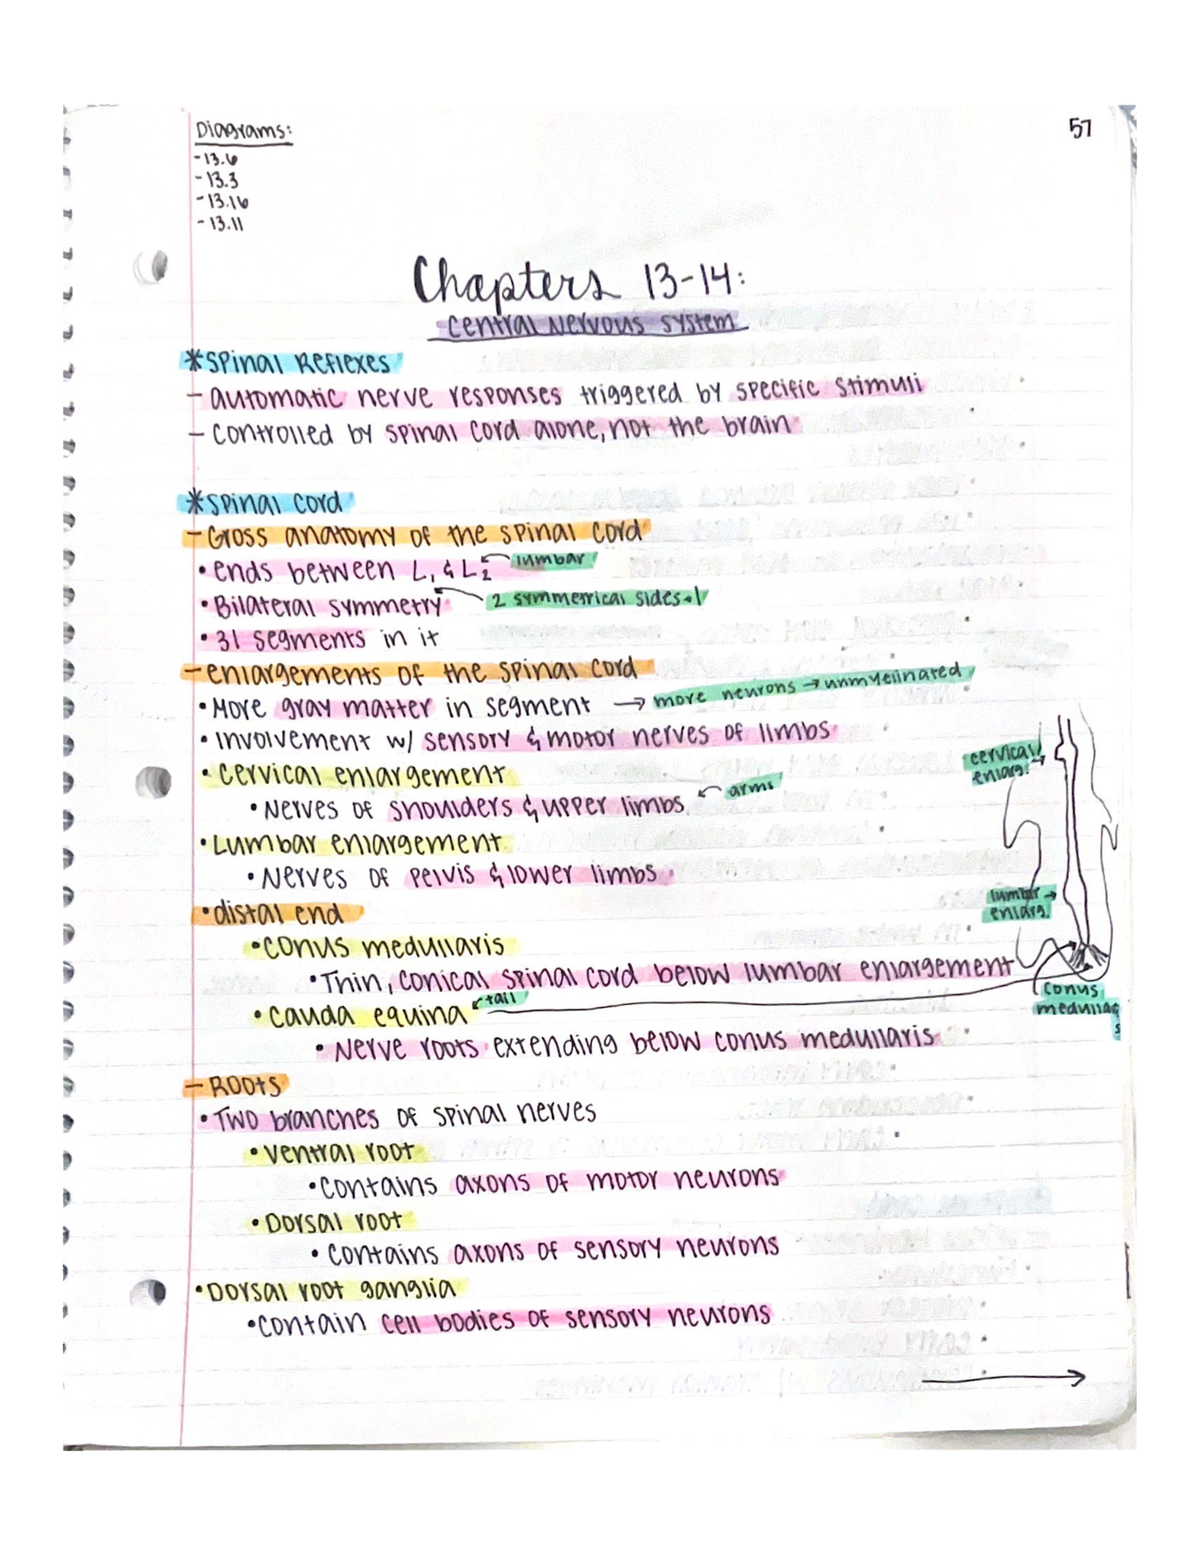 Diagrams:
57
-13.6
-13.3
-13.16
-13.11
Chapters 13-14:
Central Nervous System
*Spinal Reflexes
- automatic nerve responses triggered by specific stimuli
- controlled by spinal cord alone, not the brain
*Spinal Cord
- Gross anatomy of the spinal cord
• ends between L1 & L2 ← lumbar
• Bilateral symmetry ← 2 symmetrical sides
• 31 segments in it
- enlargements of the spinal cord
• More gray matter in segment → more neurons → unmyelinated
• involvement w/ sensory & motor nerves of limbs
• cervical enlargement
• Nerves of shoulders & upper limbs ← arms
• Lumbar enlargement
• Nerves of pelvis & lower limbs
• distal end
• conus medullaris
• Thin, conical spinal cord below lumbar enlargement
• cauda equina ← tail
• Nerve roots extending below conus medullaris
- Roots
• Two branches of spinal nerves
• ventral root
• contains axons of motor neurons
• Dorsal root
• contains axons of sensory neurons
• Dorsal root ganglia
• contain cell bodies of sensory neurons
cervical
enlarg. →
lumbar →
enlarg.
conus
medullari
s